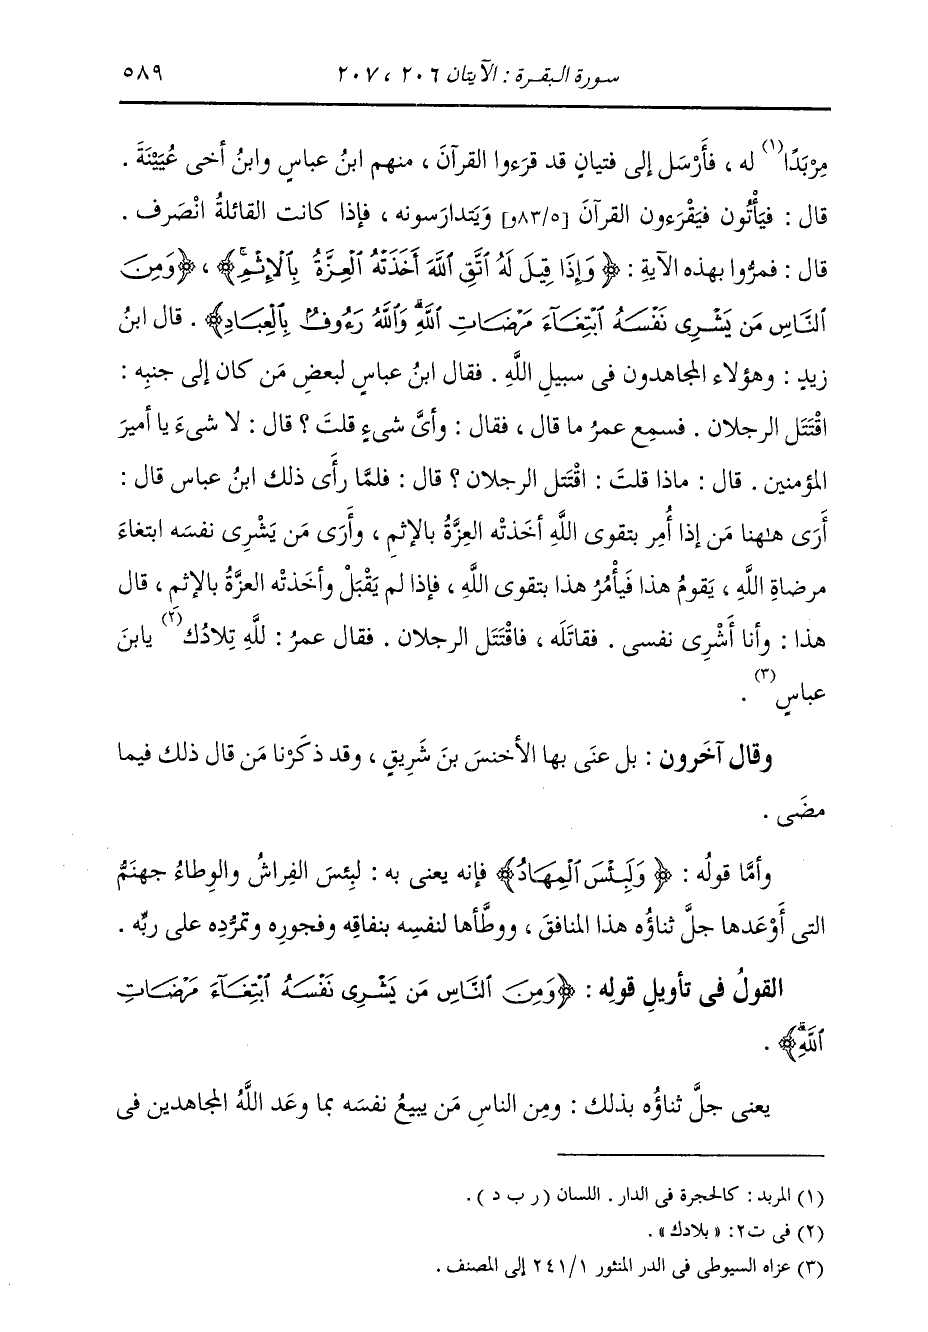 سورة البقرة : الآيتان ٢٠٦ ، ٢٠٧ ٥٨٩
مِرْبَدًا(١) له ، فأَرْسَل إلى فتيانٍ قد قرَءوا القرآنَ ، منهم ابنُ عباسٍ وابنُ أخى عُيَيْنَةَ .
قال : فيَأْتُون فيَقْرَءون القرآنَ [٨٣/٥و] ويَتدارَسونه ، فإذا كانت القائلةُ انْصَرف .
قال : فمرُّوا بهذه الآيةِ : ﴿ وَإِذَا قِيلَ لَهُ ٱتَّقِ ٱللَّهَ أَخَذَتْهُ ٱلْعِزَّةُ بِٱلْإِثْمِۚ ﴾ ، ﴿ وَمِنَ
ٱلنَّاسِ مَن يَشْرِى نَفْسَهُ ٱبْتِغَآءَ مَرْضَاتِ ٱللَّهِۗ وَٱللَّهُ رَءُوفٌۢ بِٱلْعِبَادِ﴾ . قال ابنُ
زيدٍ : وهؤلاء المجاهدون فى سبيلِ اللَّهِ . فقال ابنُ عباسٍ لبعضِ مَن كان إلى جنبِه :
اقْتَتَل الرجلان . فسمِع عمرُ ما قال ، فقال : وأىَّ شىءٍ قلتَ ؟ قال : لا شىءَ يا أميرَ
المؤمنين . قال : ماذا قلتَ : اقْتَتل الرجلان ؟ قال : فلمَّا رأَى ذلك ابنُ عباس قال :
أَرَى هٰهنا مَن إذا أُمِر بتقوى اللَّهِ أخذتْه العِزَّةُ بالإثمِ ، وأَرَى مَن يَشْرِى نفسَه ابتغاءَ
مرضاةِ اللَّهِ ، يَقومُ هذا فَيأْمُرُ هذا بتقوى اللَّهِ ، فإذا لم يَقْبَلْ وأخَذتْه العزَّةُ بالإثمِ ، قال
هذا : وأنا أَشْرِى نفسى . فقاتَله ، فاقْتَتَل الرجلان . فقال عمرُ : للَّهِ تِلادُك(٢) يابنَ
عباسٍ(٣) .
وقال آخَرون : بل عنَى بها الأخنسَ بنَ شَرِيقٍ ، وقد ذكَرْنا مَن قال ذلك فيما
مضَى .
وأمَّا قولُه : ﴿ وَلَبِئْسَ ٱلْمِهَادُ﴾ فإنه يعنى به : لبِئسَ الفِراشُ والوِطاءُ جهنَمُّ
التى أَوْعَدها جلَّ ثناؤُه هذا المنافقَ ، ووطَّأها لنفسِه بنفاقِه وفجورِه وتمرُّدِه على ربِّه .
القولُ فى تأويلِ قولِه : ﴿وَمِنَ ٱلنَّاسِ مَن يَشْرِى نَفْسَهُ ٱبْتِغَآءَ مَرْضَاتِ
ٱللَّهِۗ﴾ .
يعنى جلَّ ثناؤُه بذلك : ومِن الناسِ مَن يبيعُ نفسَه بما وعَد اللَّهُ المجاهدين فى
(١) المربد : كالحجرة فى الدار . اللسان ( ر ب د ) .
(٢) فى ت٢: « بلادك » .
(٣) عزاه السيوطى فى الدر المنثور ٢٤١/١ إلى المصنف .